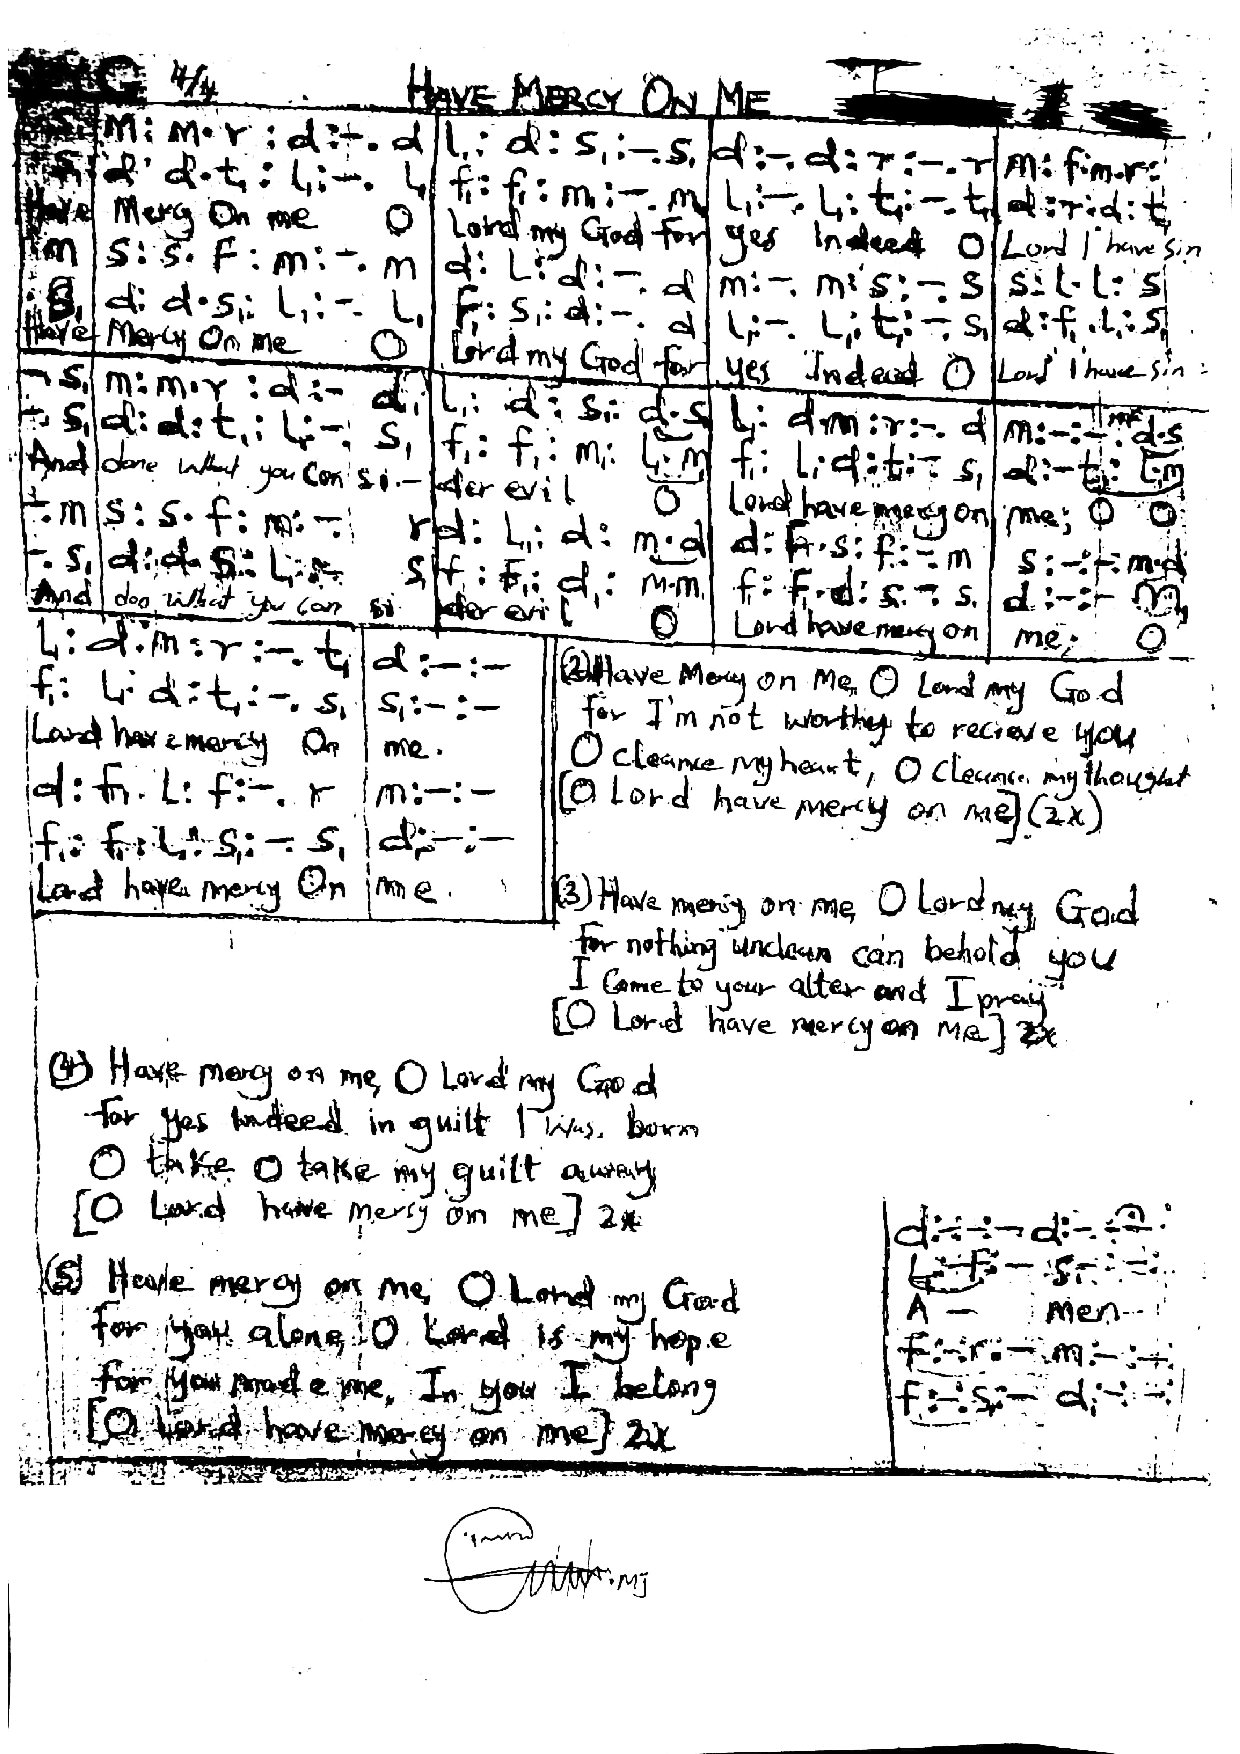 G 4/4 HAVE MERCY ON ME
S₁ m: m.r : d:-. d L₁: d: S₁:-. S₁ d:-. d: r:-. r m: f:m.r:
d d.t₁ : L₁:-. L₁ f₁: f₁: m₁:-. m₁ L₁:-. L₁: t₁:-. t₁ d:r:d:t₁
Have Mercy On me O Lord my God for yes Indeed O Lord I have sin
m s: s. f : m:-. m d: L₁: d:-. d m:-. m: s:-. s s: l. l: s
S₁ d: d.s₁: L₁:-. L₁ F₁: S₁: d:-. d L₁:-. L₁: t₁:-. S₁ d:f₁.L₁:S₁
Have Mercy On me O Lord my God for yes Indeed O Lord I have sin :
- S₁ m:m.r : d:- d L₁: d: S₁: d.s L₁: d.m:r:-. d m:-:- mf d.s
- S₁ d: d:t₁: L₁:-: S₁ f₁: f₁: m₁: L₁.m₁ f₁: L₁:d:t₁:- S₁ d:-t₁: L.m
And done what you Con si - der evil O Lord have mercy on me; O O
-.m s: s. f: m:-: r d: L₁: d: m.d d: F.s: f:-. m s:-:-:m.d
-. S₁ d:d.S₁: L₁:- S₁ f₁: F₁: d₁: m.m f: F.d: s.-: s. d:-:-
And doo what you can si der evil O Lord have mercy on me; O
L₁: d.m: r:-. t₁ d:-:-
f₁: L₁: d: t₁:-. S₁ S₁:-:-
Lord have mercy On me.
d: f. L: f:-. r m:-:-
f₁: f₁: L₁: S₁:-. S₁ d:-:-
Lord have mercy On me.
(2) Have Mercy on Me, O Lord my God
for I'm not worthy to recieve you
O cleance my heart, O cleance my thought
[O Lord have mercy on me] (2x)
(3) Have mercy on me, O Lord my God
for nothing unclean can behold you
I Come to your alter and I pray
[O Lord have mercy on me] 2x
(4) Have mercy on me, O Lord my God
for yes Indeed in guilt I was. born
O take O take my guilt away
[O Lord have mercy on me] 2x
(5) Have mercy on me, O Lord my God
for you alone, O Lord is my hope
for you made me, In you I belong
[O Lord have mercy on me] 2x
d:-:-:- d:-.-:-:
L₁:-F:- S₁:-:-:-
A - men
f:-:r:- m:-:-:-
f:-:S₁:- d₁:-:-:-
MJ